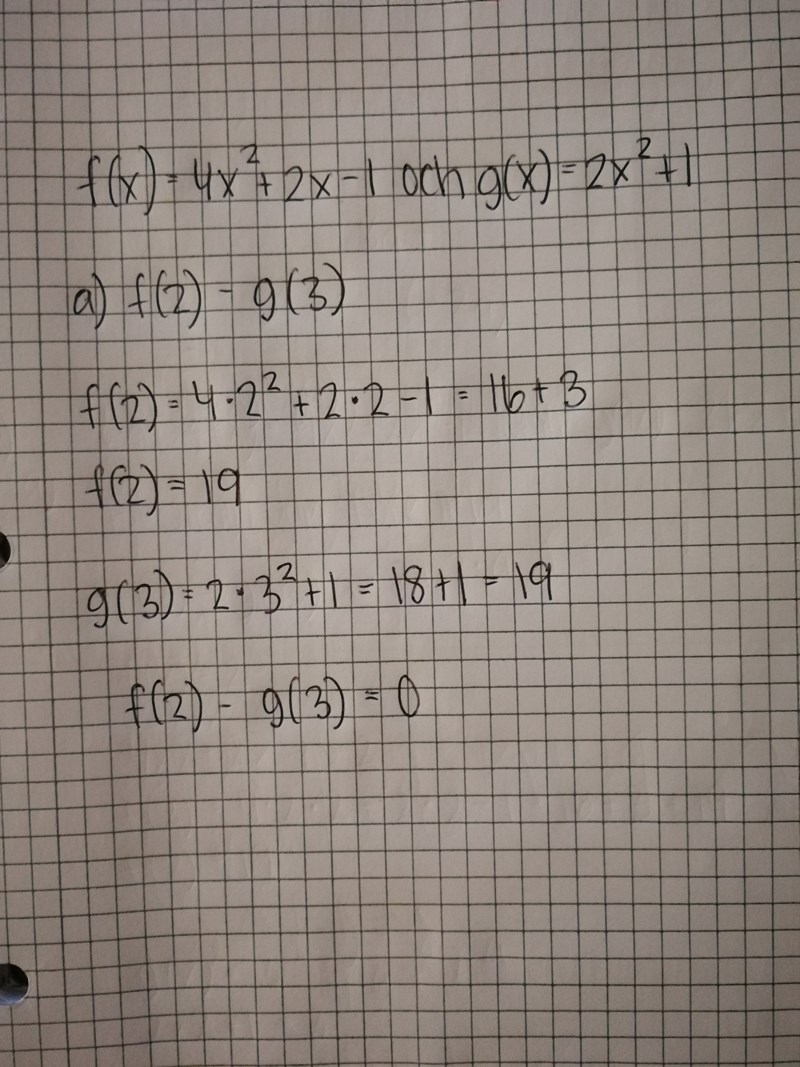 f(x) = 4x² + 2x - 1 och g(x) = 2x² + 1
a) f(2) - g(3)
f(2) = 4 · 2² + 2 · 2 - 1 = 16 + 3
f(2) = 19
g(3) = 2 · 3² + 1 = 18 + 1 = 19
f(2) - g(3) = 0